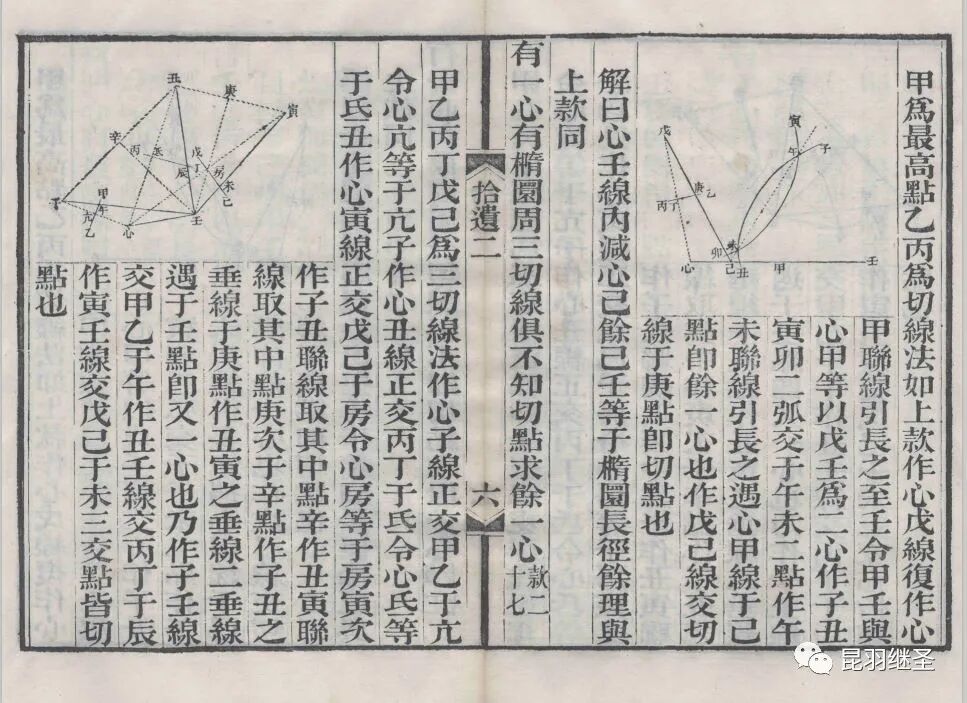 甲爲最高點乙丙爲切線法如上款作心戊線復作心
甲聯線引長之至壬令甲壬與
心甲等以戊壬爲二心作子丑
寅卯二弧交于午未二點作午
未聯線引長之遇心甲線于己
點卽餘一心也作戊己線交切
線于庚點卽切點也
解曰心壬線內減心己餘己壬等于橢圜長徑餘理與
上款同
有一心有橢圜周三切線俱不知切點求餘一心款二十七
甲乙丙丁戊己爲三切線法作心子線正交甲乙于亢
令心亢等于亢子作心丑線正交丙丁于氐令心氐等
于氐丑作心寅線正交戊己于房令心房等于房寅次
作子丑聯線取其中點辛作丑寅聯
線取其中點庚次于辛點作子丑之
垂線于庚點作丑寅之垂線二垂線
遇于壬點卽又一心也乃作子壬線
交甲乙于午作丑壬線交丙丁于辰
作寅壬線交戊己于未三交點皆切
點也
拾遺二
六
戊
寅
午
子
庚
乙
丙
丁
心
卯
未
己
丑
甲
壬
丑
庚
寅
辛
丙
氐
戊
丁
辰
房
未
己
甲
午
亢
乙
心
壬
昆羽继圣